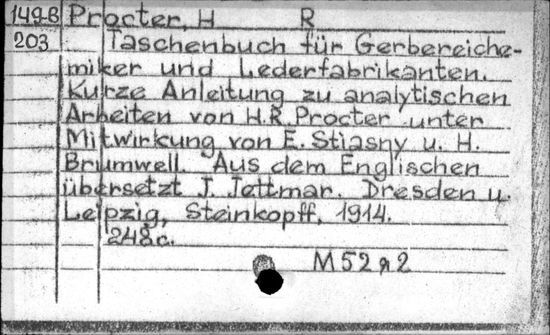 149-B Procter, H R
203 Taschenbuch für Gerbereiche-
miker und Lederfabrikanten.
Kurze Anleitung zu analytischen
Arbeiten von H.R. Procter unter
Mitwirkung von E. Stiasny u. H.
Brumwell. Aus dem Englischen
übersetzt J. Jettmar. Dresden u.
Leipzig, Steinkopff, 1914.
248 c.
M52 я2